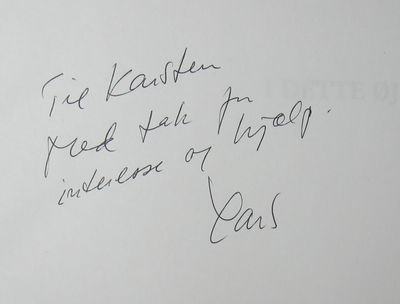 Til Karsten
Med tak for
interesse og hjælp.
Lars
I DETTE ØJ